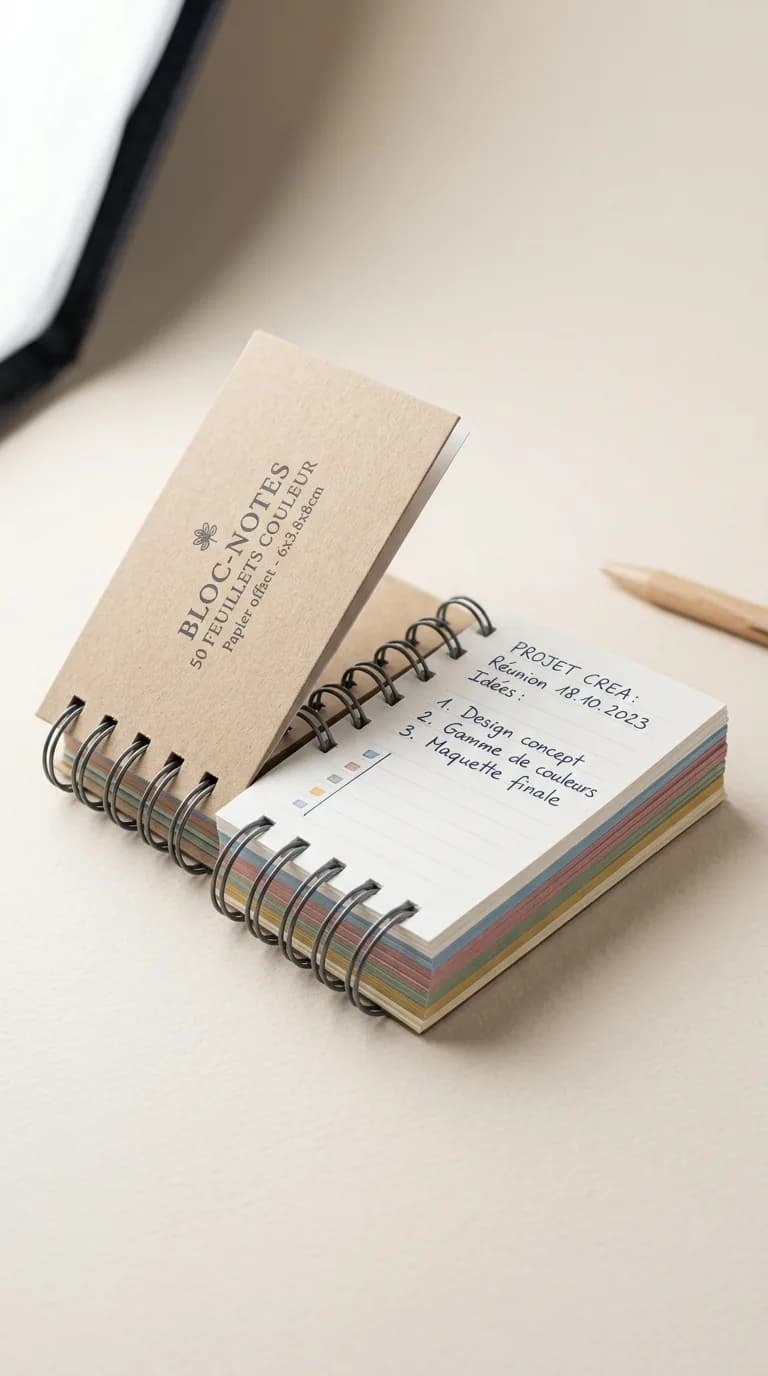 BLOC-NOTES
50 FEUILLETS COULEUR
Papier offset - 6x3.8x8cm
PROJET CREA:
Réunion 18.10.2023
Idées:
1. Design concept
2. Gamme de couleurs
3. Maquette finale